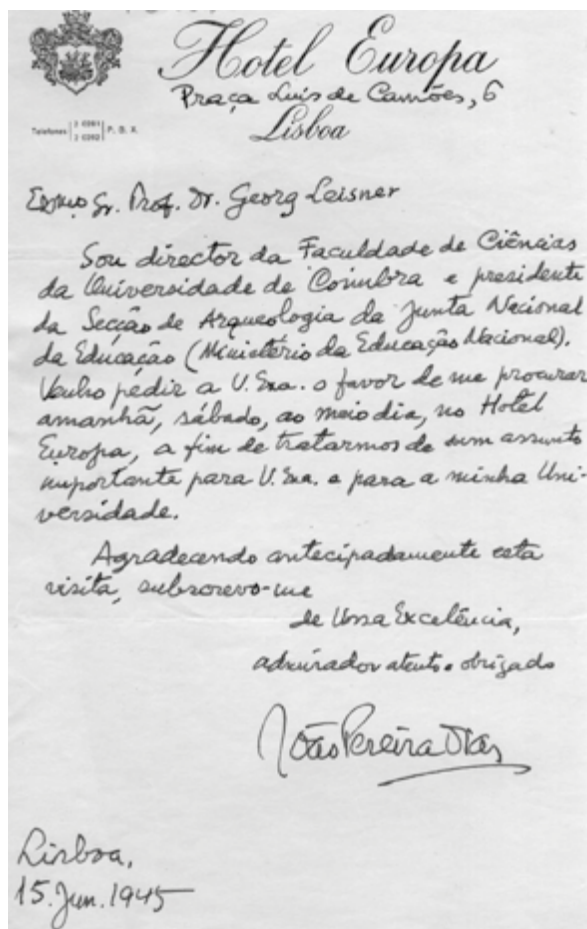 Hotel Europa
Praça Luis de Camões, 6
Lisboa
Telefones 2 0281 2 0282 P. B. X.
Exmo Sr. Prof. Dr. Georg Leisner
Sou director da Faculdade de Ciências
da Universidade de Coimbra e presidente
da Secção de Arqueologia da Junta Nacional
da Educação (Ministério da Educação Nacional).
Venho pedir a V. Exa. o favor de me procurar
amanhã, sábado, ao meio dia, no Hotel
Europa, a fim de tratarmos de um assunto
importante para V. Exa. e para a minha Uni-
versidade.
Agradecendo antecipadamente esta
visita, subscrevo-me
de Vossa Excelência,
admirador atento e obrigado
João Pereira Dias
Lisboa,
15. Jun. 1945